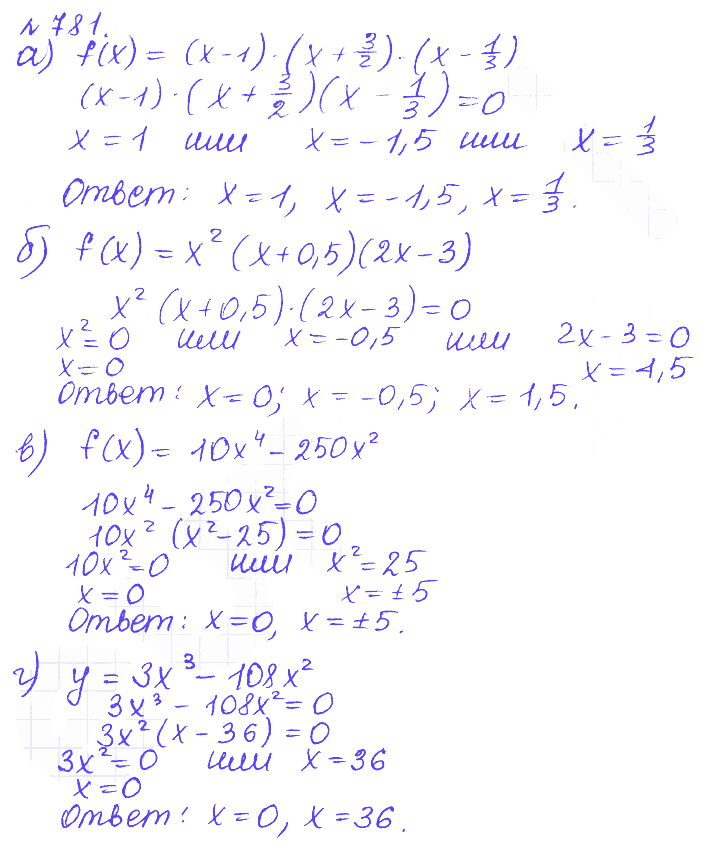 № 781.
а) f(x) = (x-1)·(x + 3/2)·(x - 1/3)
(x-1)·(x + 3/2)(x - 1/3) = 0
x = 1 или x = -1,5 или x = 1/3
Ответ: x = 1, x = -1,5, x = 1/3.
б) f(x) = x² (x+0,5)(2x-3)
x² (x+0,5)·(2x-3) = 0
x² = 0 или x = -0,5 или 2x - 3 = 0
x = 0 x = 1,5
Ответ: x = 0; x = -0,5; x = 1,5.
в) f(x) = 10x⁴ - 250x²
10x⁴ - 250x² = 0
10x² (x² - 25) = 0
10x² = 0 или x² = 25
x = 0 x = ±5
Ответ: x = 0, x = ±5.
г) y = 3x³ - 108x²
3x³ - 108x² = 0
3x² (x - 36) = 0
3x² = 0 или x = 36
x = 0
Ответ: x = 0, x = 36.